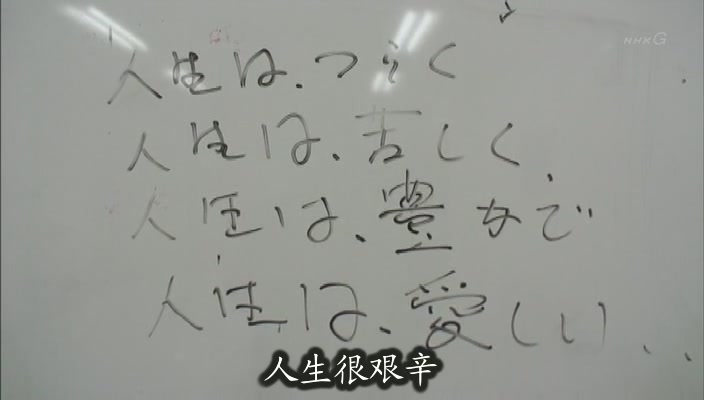 NHK G
人生は、つらく
人生は、苦しく、
人生は、豊かで
人生は、愛しい、、
人生很艰辛